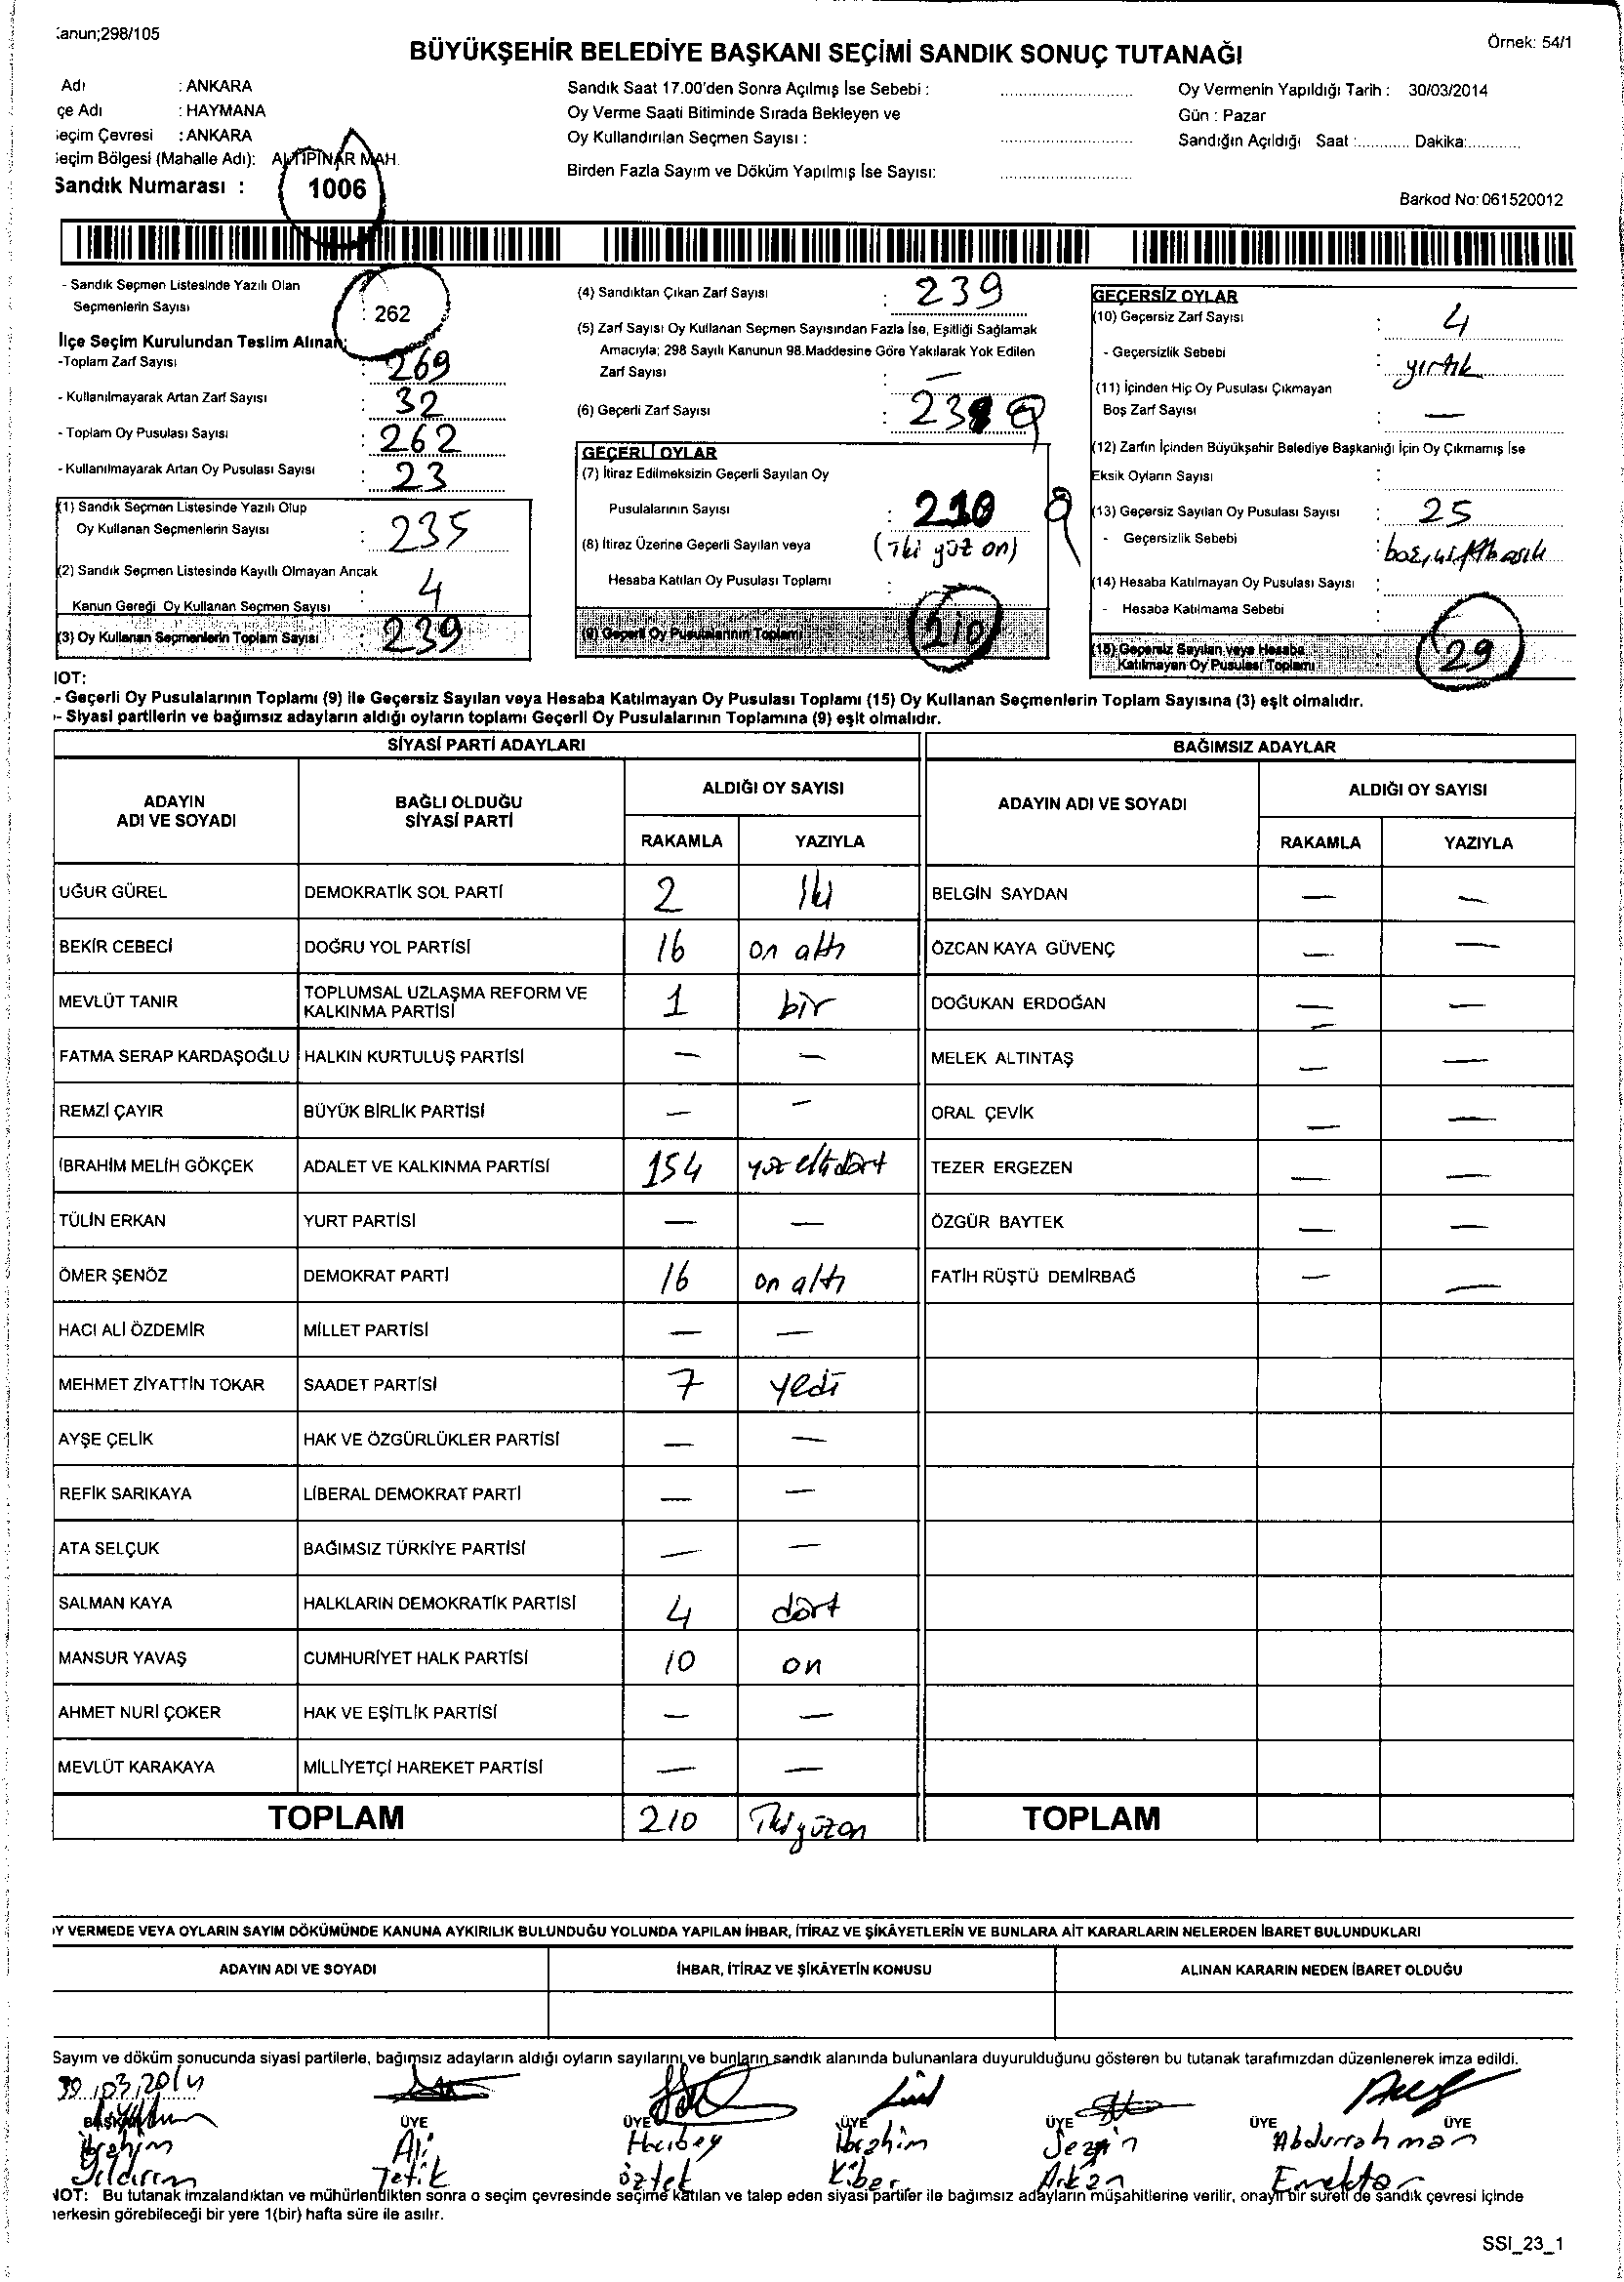 :anun;298/105
Örnek: 54/1
BÜYÜKŞEHİR BELEDİYE BAŞKANI SEÇİMİ SANDIK SONUÇ TUTANAĞI
Adı : ANKARA
çe Adı : HAYMANA
eçim Çevresi : ANKARA
eçim Bölgesi (Mahalle Adı): MAH.
Sandık Numarası : 1006
Sandık Saat 17.00'den Sonra Açılmış İse Sebebi :
Oy Verme Saati Bitiminde Sırada Bekleyen ve
Oy Kullandırılan Seçmen Sayısı :
Birden Fazla Sayım ve Döküm Yapılmış İse Sayısı:
Oy Vermenin Yapıldığı Tarih : 30/03/2014
Gün : Pazar
Sandığın Açıldığı Saat :............ Dakika:............
Barkod No: 061520012
- Sandık Seçmen Listesinde Yazılı Olan
Seçmenlerin Sayısı : 262
İlçe Seçim Kurulundan Teslim Alınan;
-Toplam Zarf Sayısı : 269
- Kullanılmayarak Artan Zarf Sayısı : 32
- Toplam Oy Pusulası Sayısı : 262
- Kullanılmayarak Artan Oy Pusulası Sayısı : 23
(1) Sandık Seçmen Listesinde Yazılı Olup
Oy Kullanan Seçmenlerin Sayısı : 235
(2) Sandık Seçmen Listesinde Kayıtlı Olmayan Ancak
Kanun Gereği Oy Kullanan Seçmen Sayısı : 4
(3) Oy Kullanan Seçmenlerin Toplam Sayısı : 239
(4) Sandıktan Çıkan Zarf Sayısı : 239
(5) Zarf Sayısı Oy Kullanan Seçmen Sayısından Fazla İse, Eşitliği Sağlamak
Amacıyla; 298 Sayılı Kanunun 98.Maddesine Göre Yakılarak Yok Edilen
Zarf Sayısı : —
(6) Geçerli Zarf Sayısı : 239
GEÇERLİ OYLAR
(7) İtiraz Edilmeksizin Geçerli Sayılan Oy
Pusulalarının Sayısı : 210
(iki yüz on)
(8) İtiraz Üzerine Geçerli Sayılan veya
Hesaba Katılan Oy Pusulası Toplamı :
(9) Geçerli Oy Pusulalarının Toplamı 210
GEÇERSİZ OYLAR
(10) Geçersiz Zarf Sayısı : 4
- Geçersizlik Sebebi : yırtık
(11) İçinden Hiç Oy Pusulası Çıkmayan
Boş Zarf Sayısı : —
(12) Zarfın İçinden Büyükşehir Belediye Başkanlığı İçin Oy Çıkmamış İse
Eksik Oyların Sayısı :
(13) Geçersiz Sayılan Oy Pusulası Sayısı : 25
- Geçersizlik Sebebi :
(14) Hesaba Katılmayan Oy Pusulası Sayısı :
- Hesaba Katılmama Sebebi :
(15) Geçersiz Sayılan veya Hesaba
Katılmayan Oy Pusulası Toplamı : 29
NOT:
- Geçerli Oy Pusulalarının Toplamı (9) ile Geçersiz Sayılan veya Hesaba Katılmayan Oy Pusulası Toplamı (15) Oy Kullanan Seçmenlerin Toplam Sayısına (3) eşit olmalıdır.
- Siyasi partilerin ve bağımsız adayların aldığı oyların toplamı Geçerli Oy Pusulalarının Toplamına (9) eşit olmalıdır.
SİYASİ PARTİ ADAYLARI BAĞIMSIZ ADAYLAR
ADAYIN ADI VE SOYADI BAĞLI OLDUĞU SİYASİ PARTİ ALDIĞI OY SAYISI ADAYIN ADI VE SOYADI ALDIĞI OY SAYISI
RAKAMLA YAZIYLA RAKAMLA YAZIYLA
UĞUR GÜREL DEMOKRATİK SOL PARTİ 2 iki BELGİN SAYDAN — —
BEKİR CEBECİ DOĞRU YOL PARTİSİ 16 on altı ÖZCAN KAYA GÜVENÇ — —
MEVLÜT TANIR TOPLUMSAL UZLAŞMA REFORM VE KALKINMA PARTİSİ 1 bir DOĞUKAN ERDOĞAN — —
FATMA SERAP KARDAŞOĞLU HALKIN KURTULUŞ PARTİSİ — — MELEK ALTINTAŞ — —
REMZİ ÇAYIR BÜYÜK BİRLİK PARTİSİ — — ORAL ÇEVİK — —
İBRAHİM MELİH GÖKÇEK ADALET VE KALKINMA PARTİSİ 154 yüz elli dört TEZER ERGEZEN — —
TÜLİN ERKAN YURT PARTİSİ — — ÖZGÜR BAYTEK — —
ÖMER ŞENÖZ DEMOKRAT PARTİ 16 on altı FATİH RÜŞTÜ DEMİRBAĞ — —
HACI ALİ ÖZDEMİR MİLLET PARTİSİ — —
MEHMET ZİYATTİN TOKAR SAADET PARTİSİ 7 yedi
AYŞE ÇELİK HAK VE ÖZGÜRLÜKLER PARTİSİ — —
REFİK SARIKAYA LİBERAL DEMOKRAT PARTİ — —
ATA SELÇUK BAĞIMSIZ TÜRKİYE PARTİSİ — —
SALMAN KAYA HALKLARIN DEMOKRATİK PARTİSİ 4 dört
MANSUR YAVAŞ CUMHURİYET HALK PARTİSİ 10 on
AHMET NURİ ÇOKER HAK VE EŞİTLİK PARTİSİ — —
MEVLÜT KARAKAYA MİLLİYETÇİ HAREKET PARTİSİ — —
TOPLAM 210 iki yüzon TOPLAM
Y VERMEDE VEYA OYLARIN SAYIM DÖKÜMÜNDE KANUNA AYKIRILIK BULUNDUĞU YOLUNDA YAPILAN İHBAR, İTİRAZ VE ŞİKÂYETLERİN VE BUNLARA AİT KARARLARIN NELERDEN İBARET BULUNDUKLARI
ADAYIN ADI VE SOYADI İHBAR, İTİRAZ VE ŞİKÂYETİN KONUSU ALINAN KARARIN NEDEN İBARET OLDUĞU
Sayım ve döküm sonucunda siyasi partilerle, bağımsız adayların aldığı oyların sayılarını ve bunların sandık alanında bulunanlara duyurulduğunu gösteren bu tutanak tarafımızdan düzenlenerek imza edildi.
30/03/2014
BAŞKAN ÜYE ÜYE ÜYE ÜYE ÜYE ÜYE
İbrahim Ali İbrahim Sezgin Abdurrahman
Yıldırım Tetik öztek Kiber Arkan Emektar
NOT: Bu tutanak imzalandıktan ve mühürlendikten sonra o seçim çevresinde seçime katılan ve talep eden siyasi partiler ile bağımsız adayların müşahitlerine verilir, onaylı bir sureti de sandık çevresi içinde
herkesin görebileceği bir yere 1(bir) hafta süre ile asılır.
SSI_23_1